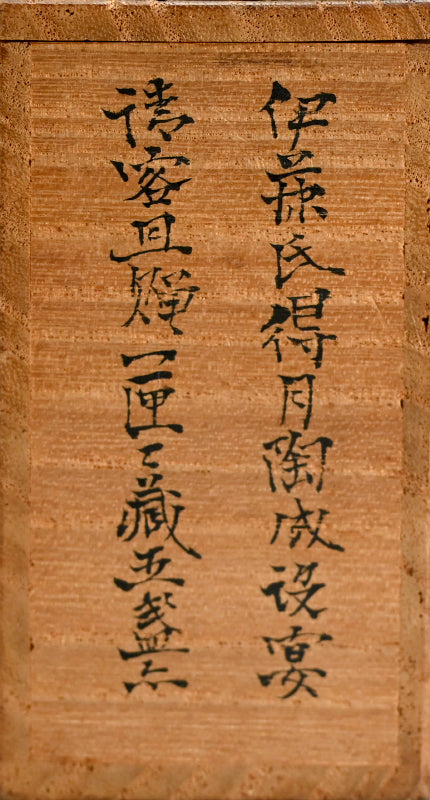 伊藤氏得月陶成設宴
請客且贈一匣々藏五盞亦